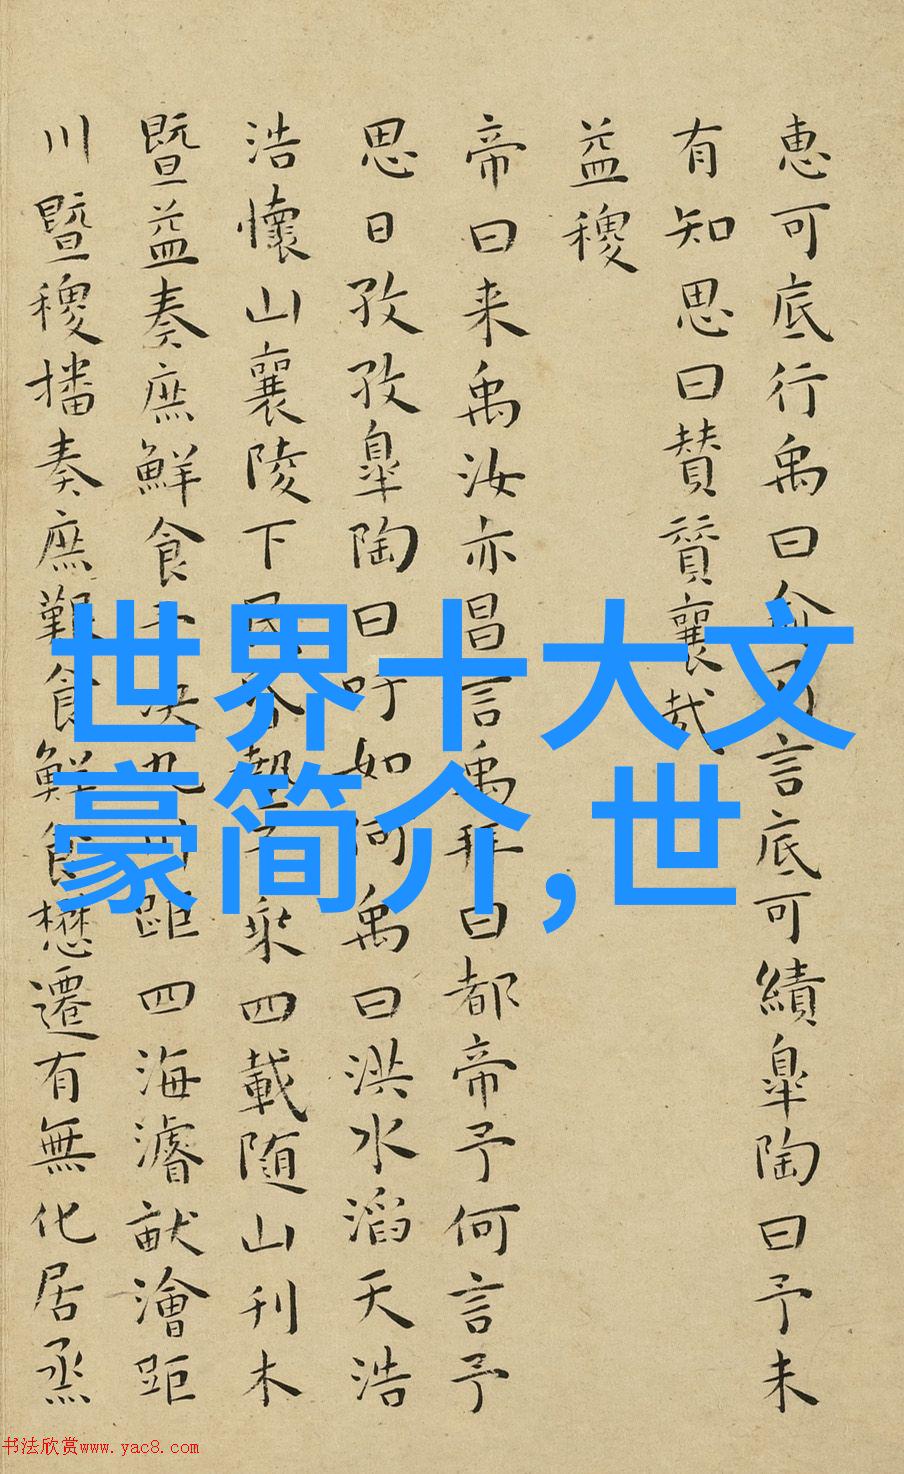 恵可底行禹曰俞乃言底可績皐陶曰予未
有知思曰賛賛襄哉
益稷
帝曰来禹汝亦昌言禹拜曰都帝予何言予
思日孜孜皐陶曰吁如何禹曰洪水滔天浩
浩懷山襄陵下民昏墊予乗四載随山刊木
暨益奏庶鮮食予决九川距四海濬畎澮距
川暨稷播奏庶艱食鮮食懋遷有無化居烝
世界十大文
豪简介,世
书法欣赏www.yac8.com